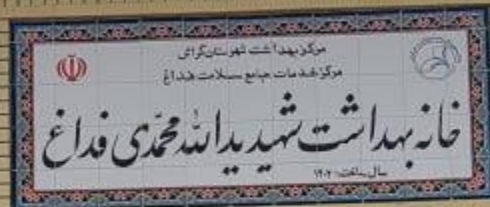 مرکز بهداشت شهرستان گراش
مرکز خدمات جامع سلامت فداغ
خانه بهداشت شهید یدالله محمدی فداغ
سال ساخت: ۱۴۰۲